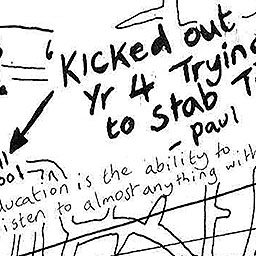 Kicked out
Yr 4 Trying
to Stab
- Paul
is the ability to
listen to almost anything